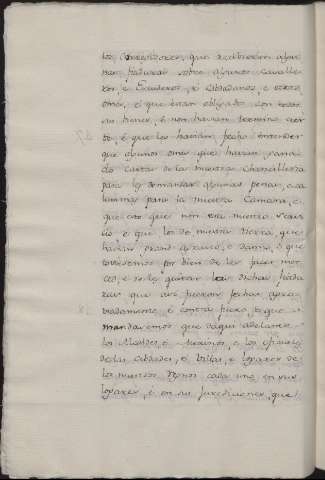 los Corredores, que recibieron algu-
nas
sobre algunos cavalle-
ros e Escuderos, e Cibdadanos, e otros
omes, e que eran obligados con todos
sus bienes, e non havian termino cier-
to, e que les havian fecho entender
que algunos omes que havian gana-
do cartas de la nuestra Chancelleria
para les demandar algunas penas, e ca-
lomnias para la nuestra Camara, e
que esto que non era nuestro
e que los de nuestra tierra que
havian grand agravio, e danno, e que
toviesemos por bien de les facer mer-
ced, e de les quitar las dichas
que asi fueron fechas agra-
viadamente, e contra fuero, e que
mandasemos que daqui adelante
los Alcaldes, e Merinos, e los oficiales
de las Cibdades, e Villas, e logares de
los nuestros Regnos cada uno en sus
logares, e en su juredicion, que